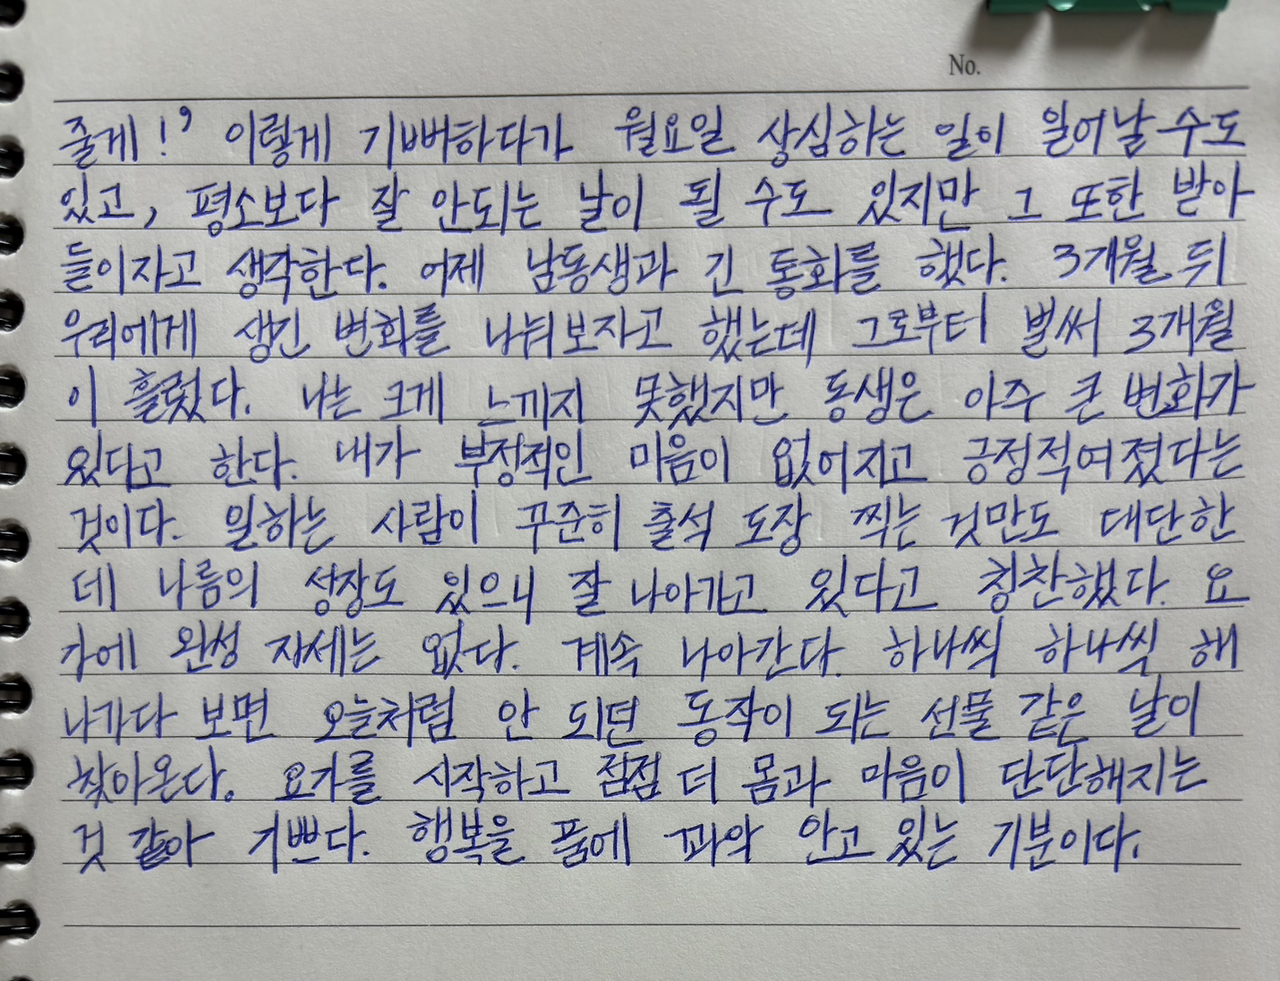 No.
줄게!’ 이렇게 기뻐하다가 월요일 상심하는 일이 일어날 수도
있고, 평소보다 잘 안되는 날이 될 수도 있지만 그 또한 받아
들이자고 생각한다. 어제 남동생과 긴 통화를 했다. 3개월 뒤
우리에게 생긴 변화를 나눠보자고 했는데 그로부터 벌써 3개월
이 흘렀다. 나는 크게 느끼지 못했지만 동생은 아주 큰 변화가
있다고 한다. 내가 부정적인 마음이 없어지고 긍정적여졌다는
것이다. 일하는 사람이 꾸준히 출석 도장 찍는 것만도 대단한
데 나름의 성장도 있으니 잘 나아가고 있다고 칭찬했다. 요
가에 완성 자세는 없다. 계속 나아간다. 하나씩 하나씩 해
나가다 보면 오늘처럼 안 되던 동작이 되는 선물 같은 날이
찾아온다. 요가를 시작하고 점점 더 몸과 마음이 단단해지는
것 같아 기쁘다. 행복을 품에 꽈악 안고 있는 기분이다.